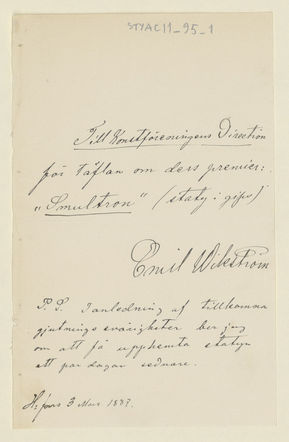 STYAC11-95-1
Till Konstföreningens Direktion
för täflan om dess premier:
"Smultron" (staty i gips)
Emil Wikström
P.S. I anledning af tillkomna
gjutnings svårigheter ber jag
om att få upphemta statyn
ett par dagar sednare.
H:fors 3 Mars 1887.